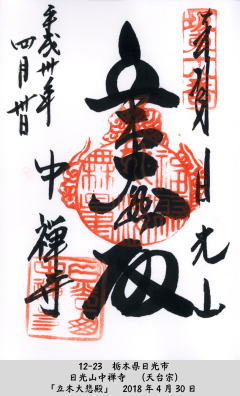 奉拝 日光山
立木大悲殿
中禅寺
平成卅年
四月卅日
12-23 栃木県日光市
日光山中禅寺 (天台宗)
「立木大悲殿」 2018年4月30日